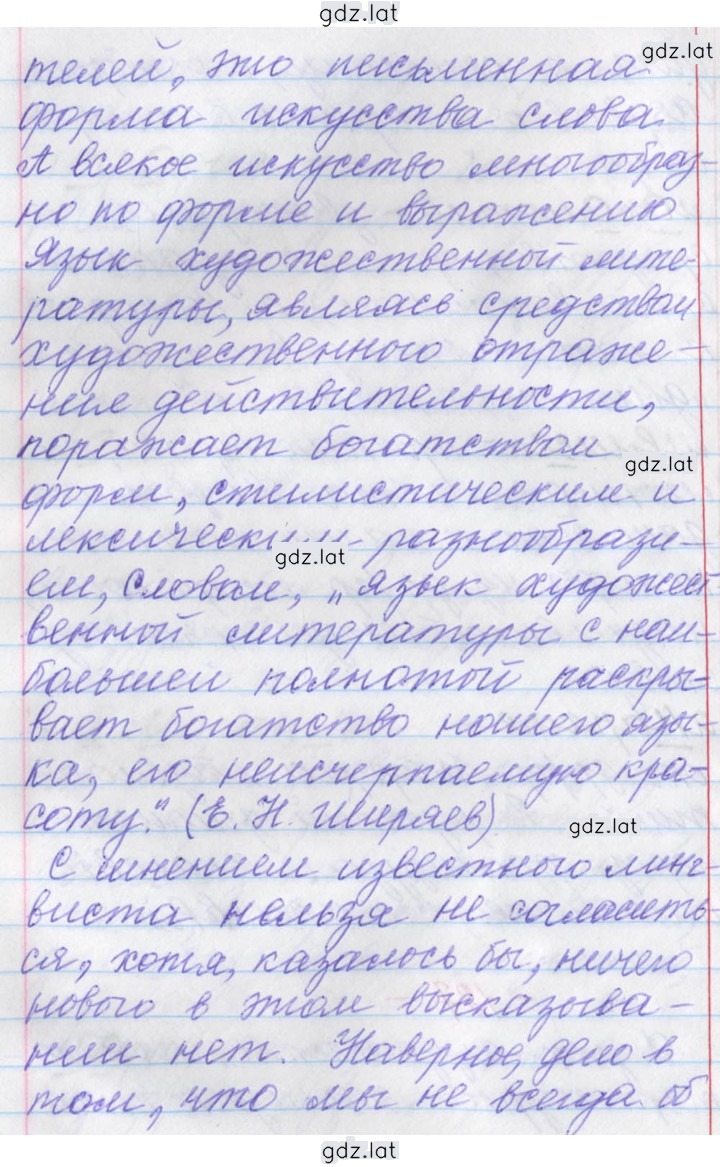 gdz.lat
gdz.lat
телей, это письменная
форма искусства слова.
А всякое искусство многообраз-
но по форме и выражению
Язык художественный лите-
ратуры, являясь средством
художественного отраже-
ния действительности,
поражает богатством
gdz.lat
форм, стилистическим и
лексическим разнообрази-
gdz.lat
ем, словам, „язык художест
венной литературы с наи-
большей полнотой раскры-
вает богатство нашего язы-
ка, его неисчерпаемую кра-
соту." (Е. Н. Ширяев)
gdz.lat
С мнением известного линг-
виста нельзя не согласить-
ся, хотя, казалось бы, ничего
нового в этом высказыва-
нии нет. Наверное, дело в
том, что мы не всегда об
gdz.lat